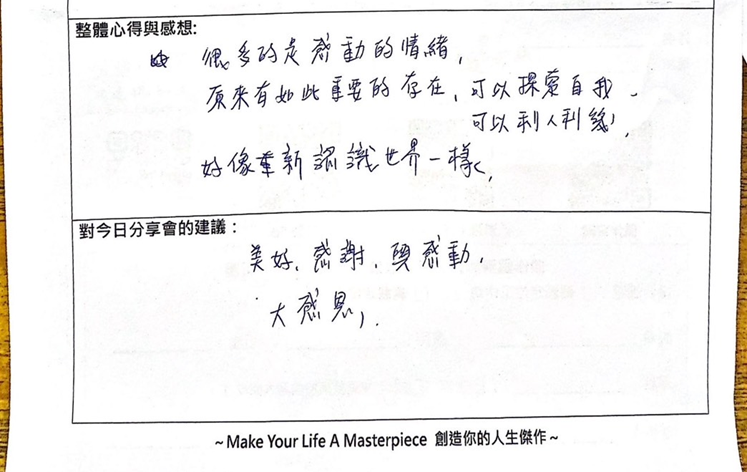 整體心得與感想:
很多的是感動的情緒,
原來有如此重要的存在,可以探索自我、
可以利人利幾,
好像重新認識世界一樣,
對今日分享會的建議:
美好、感謝、與感動,
大感恩,.
~ Make Your Life A Masterpiece 創造你的人生傑作 ~